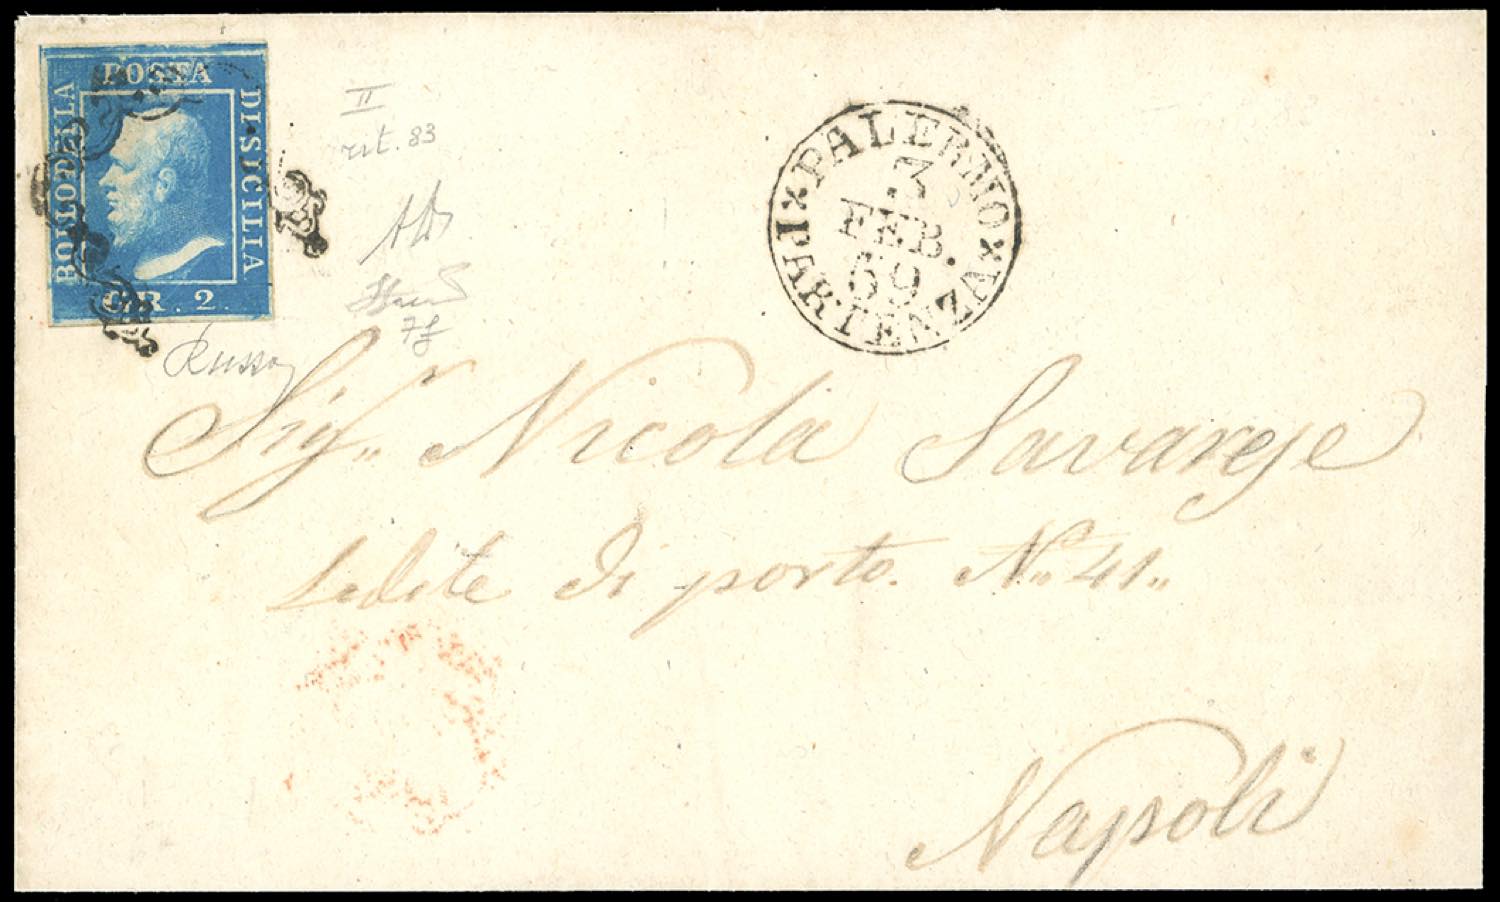 POSTA
BOLLO DELLA
DI SICILIA
GR. 2.
II
rit. 83
Russo
PALERMO
PARTENZA
3
FEB.
59
Sig.r Nicola Savarese
di porto. N. 41
Napoli